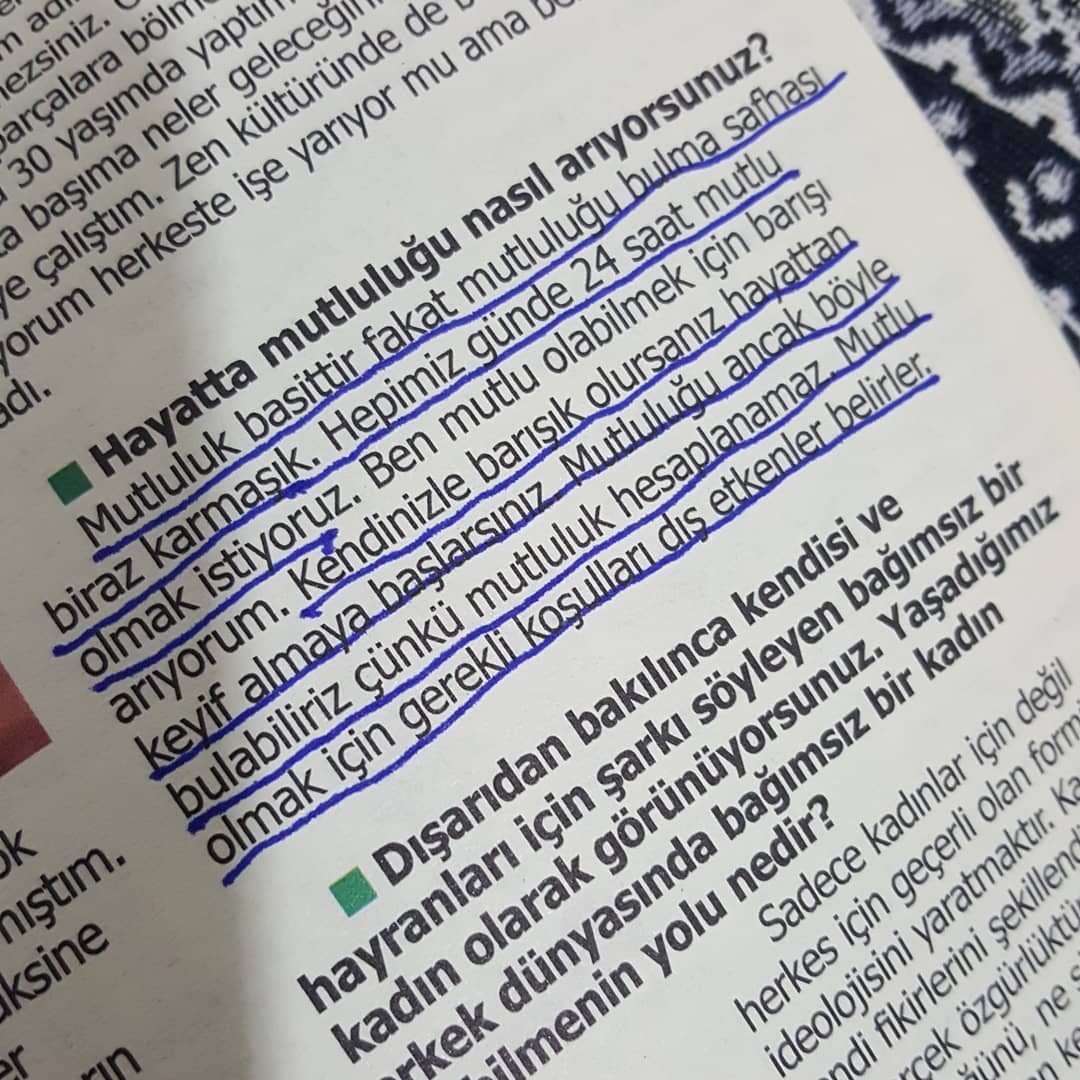 parçalara
30 yaşımda yaptım
başıma neler geleceğin
çalıştım. Zen kültüründe de b
yorum herkeste işe yarıyor mu ama be
adı.
Hayatta mutluluğu nasıl arıyorsunuz?
Mutluluk basittir fakat mutluluğu bulma safhası
biraz karmaşık. Hepimiz günde 24 saat mutlu
olmak istiyoruz. Ben mutlu olabilmek için barışı
arıyorum. Kendinizle barışık olursanız hayattan
keyif almaya başlarsınız. Mutluluğu ancak böyle
bulabiliriz çünkü mutluluk hesaplanamaz. Mutlu
olmak için gerekli koşulları dış etkenler belirler.
Dışarıdan bakılınca kendisi ve
hayranları için şarkı söyleyen bağımsız bir
kadın olarak görünüyorsunuz. Yaşadığımız
erkek dünyasında bağımsız bir kadın
bilmenin yolu nedir?
Sadece kadınlar için değil
herkes için geçerli olan form
ideolojisini yaratmaktır. Ka
ndi fikirlerini şekillend
rçek özgürlüktü
ğünü, ne s
ok
mıştım.
aksine
er
rın